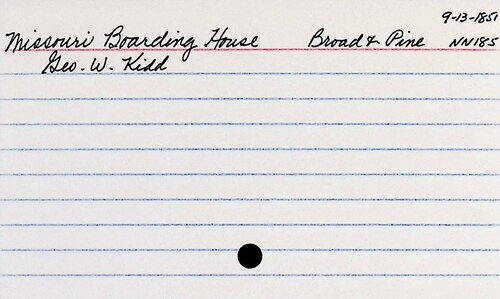 9-13-1851
Missouri Boarding House Broad & Pine NN185
Geo. W. Kidd